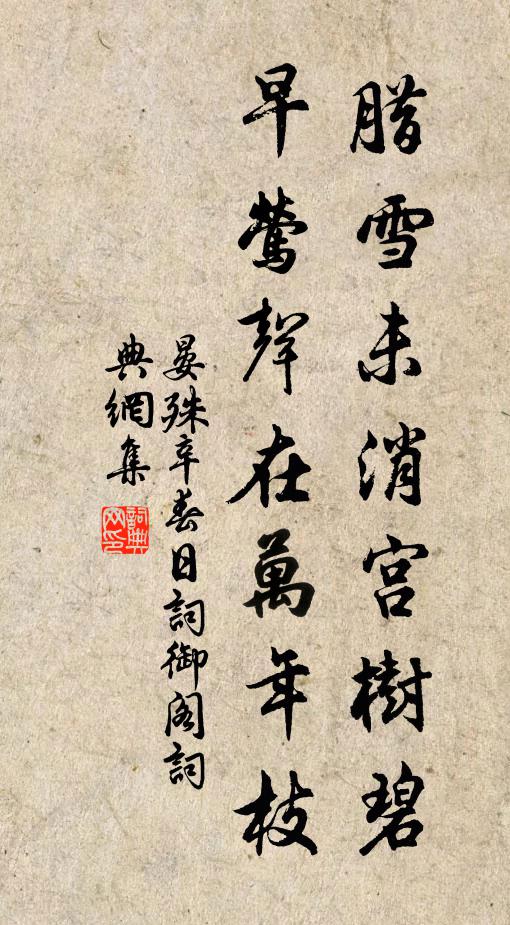 腊雪未消宫樹碧
早鶯聲在萬年枝
晏殊辛春日詞御閣詞
典網集
詞典
网印